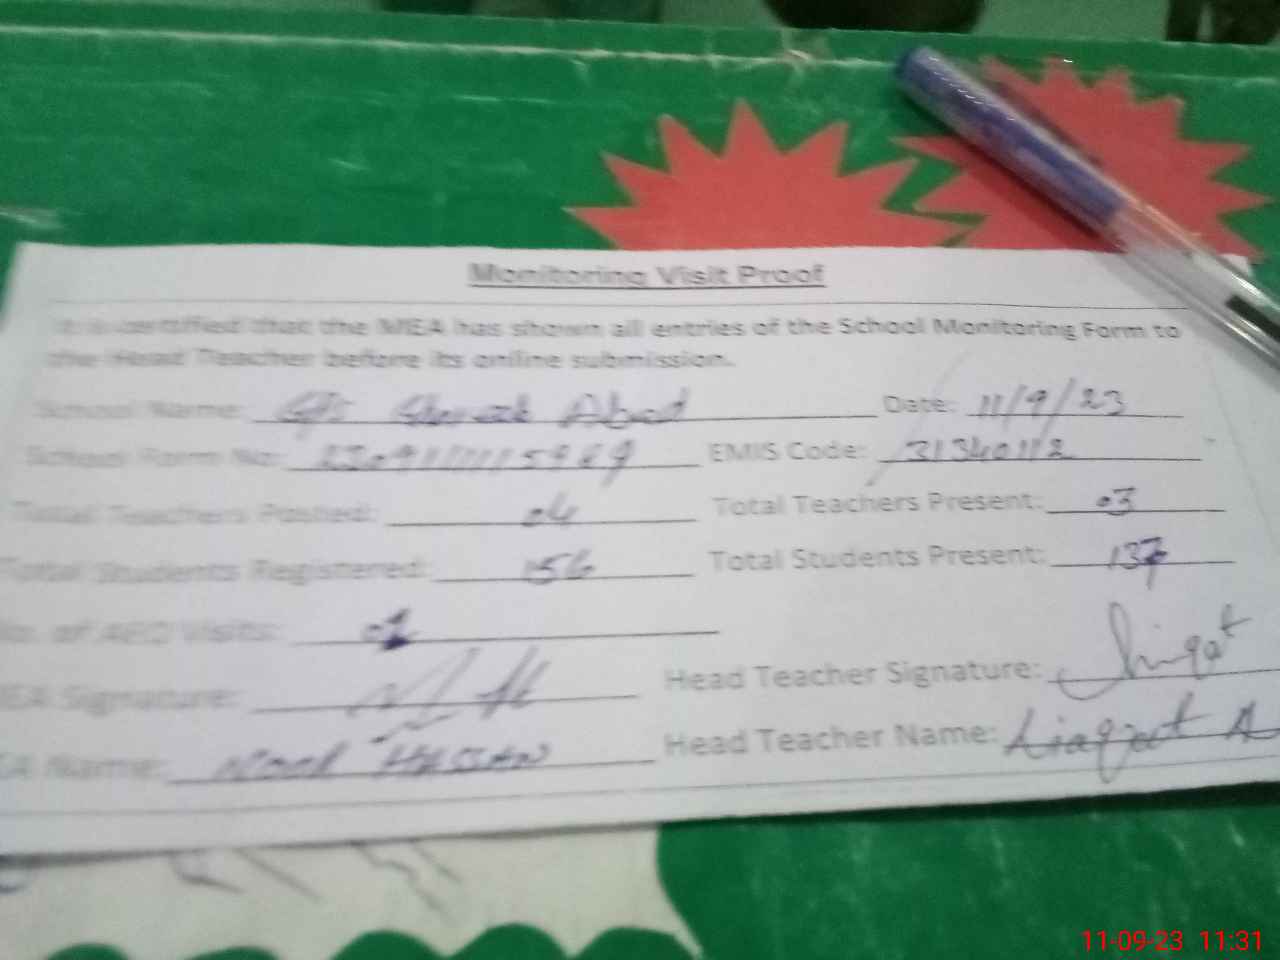 Monitoring Visit Proof
It is certified that the MEA has shown all entries of the School Monitoring Form to
the Head Teacher before its online submission.
School Name: Abad Date: 11/9/23
School Form No: EMIS Code: 31340112
Total Teachers Posted: 04 Total Teachers Present: 03
Total Students Registered: 156 Total Students Present: 137
No. of AEO Visits: Head Teacher Signature:
EA Signature:
EA Name: Hassan Head Teacher Name: Liaqat A
11-09-23 11:31